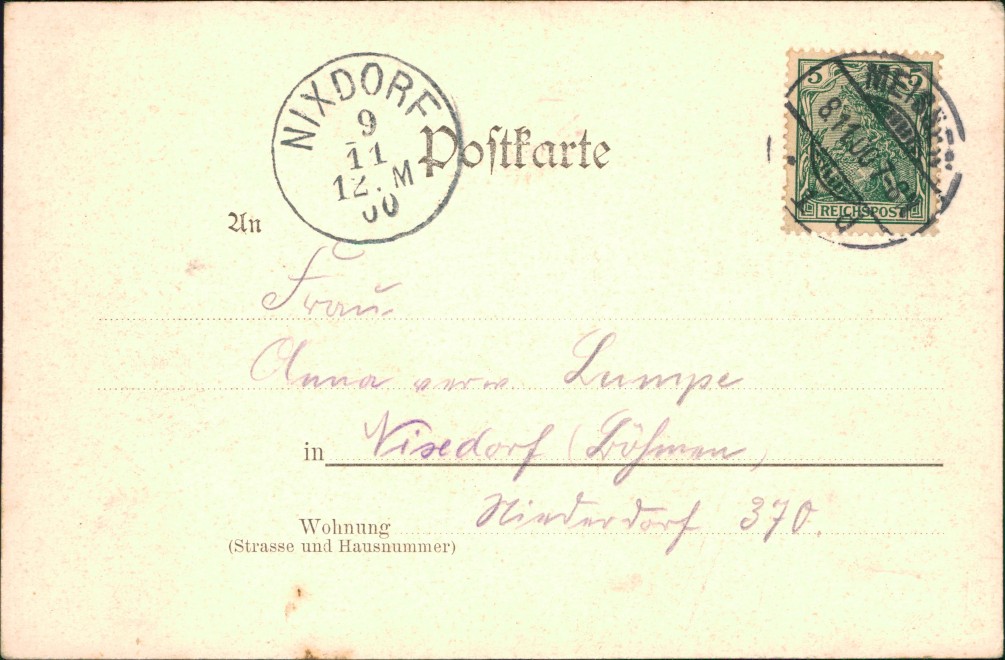 NIXDORF
9
11
12.M
00
Postkarte
5 5
REICHSPOST
MEISSEN
8.11.00.7-8
An
Frau
Anna verw. Lumpe
in Nixdorf (Böhmen)
Niederdorf 370.
Wohnung
(Strasse und Hausnummer)